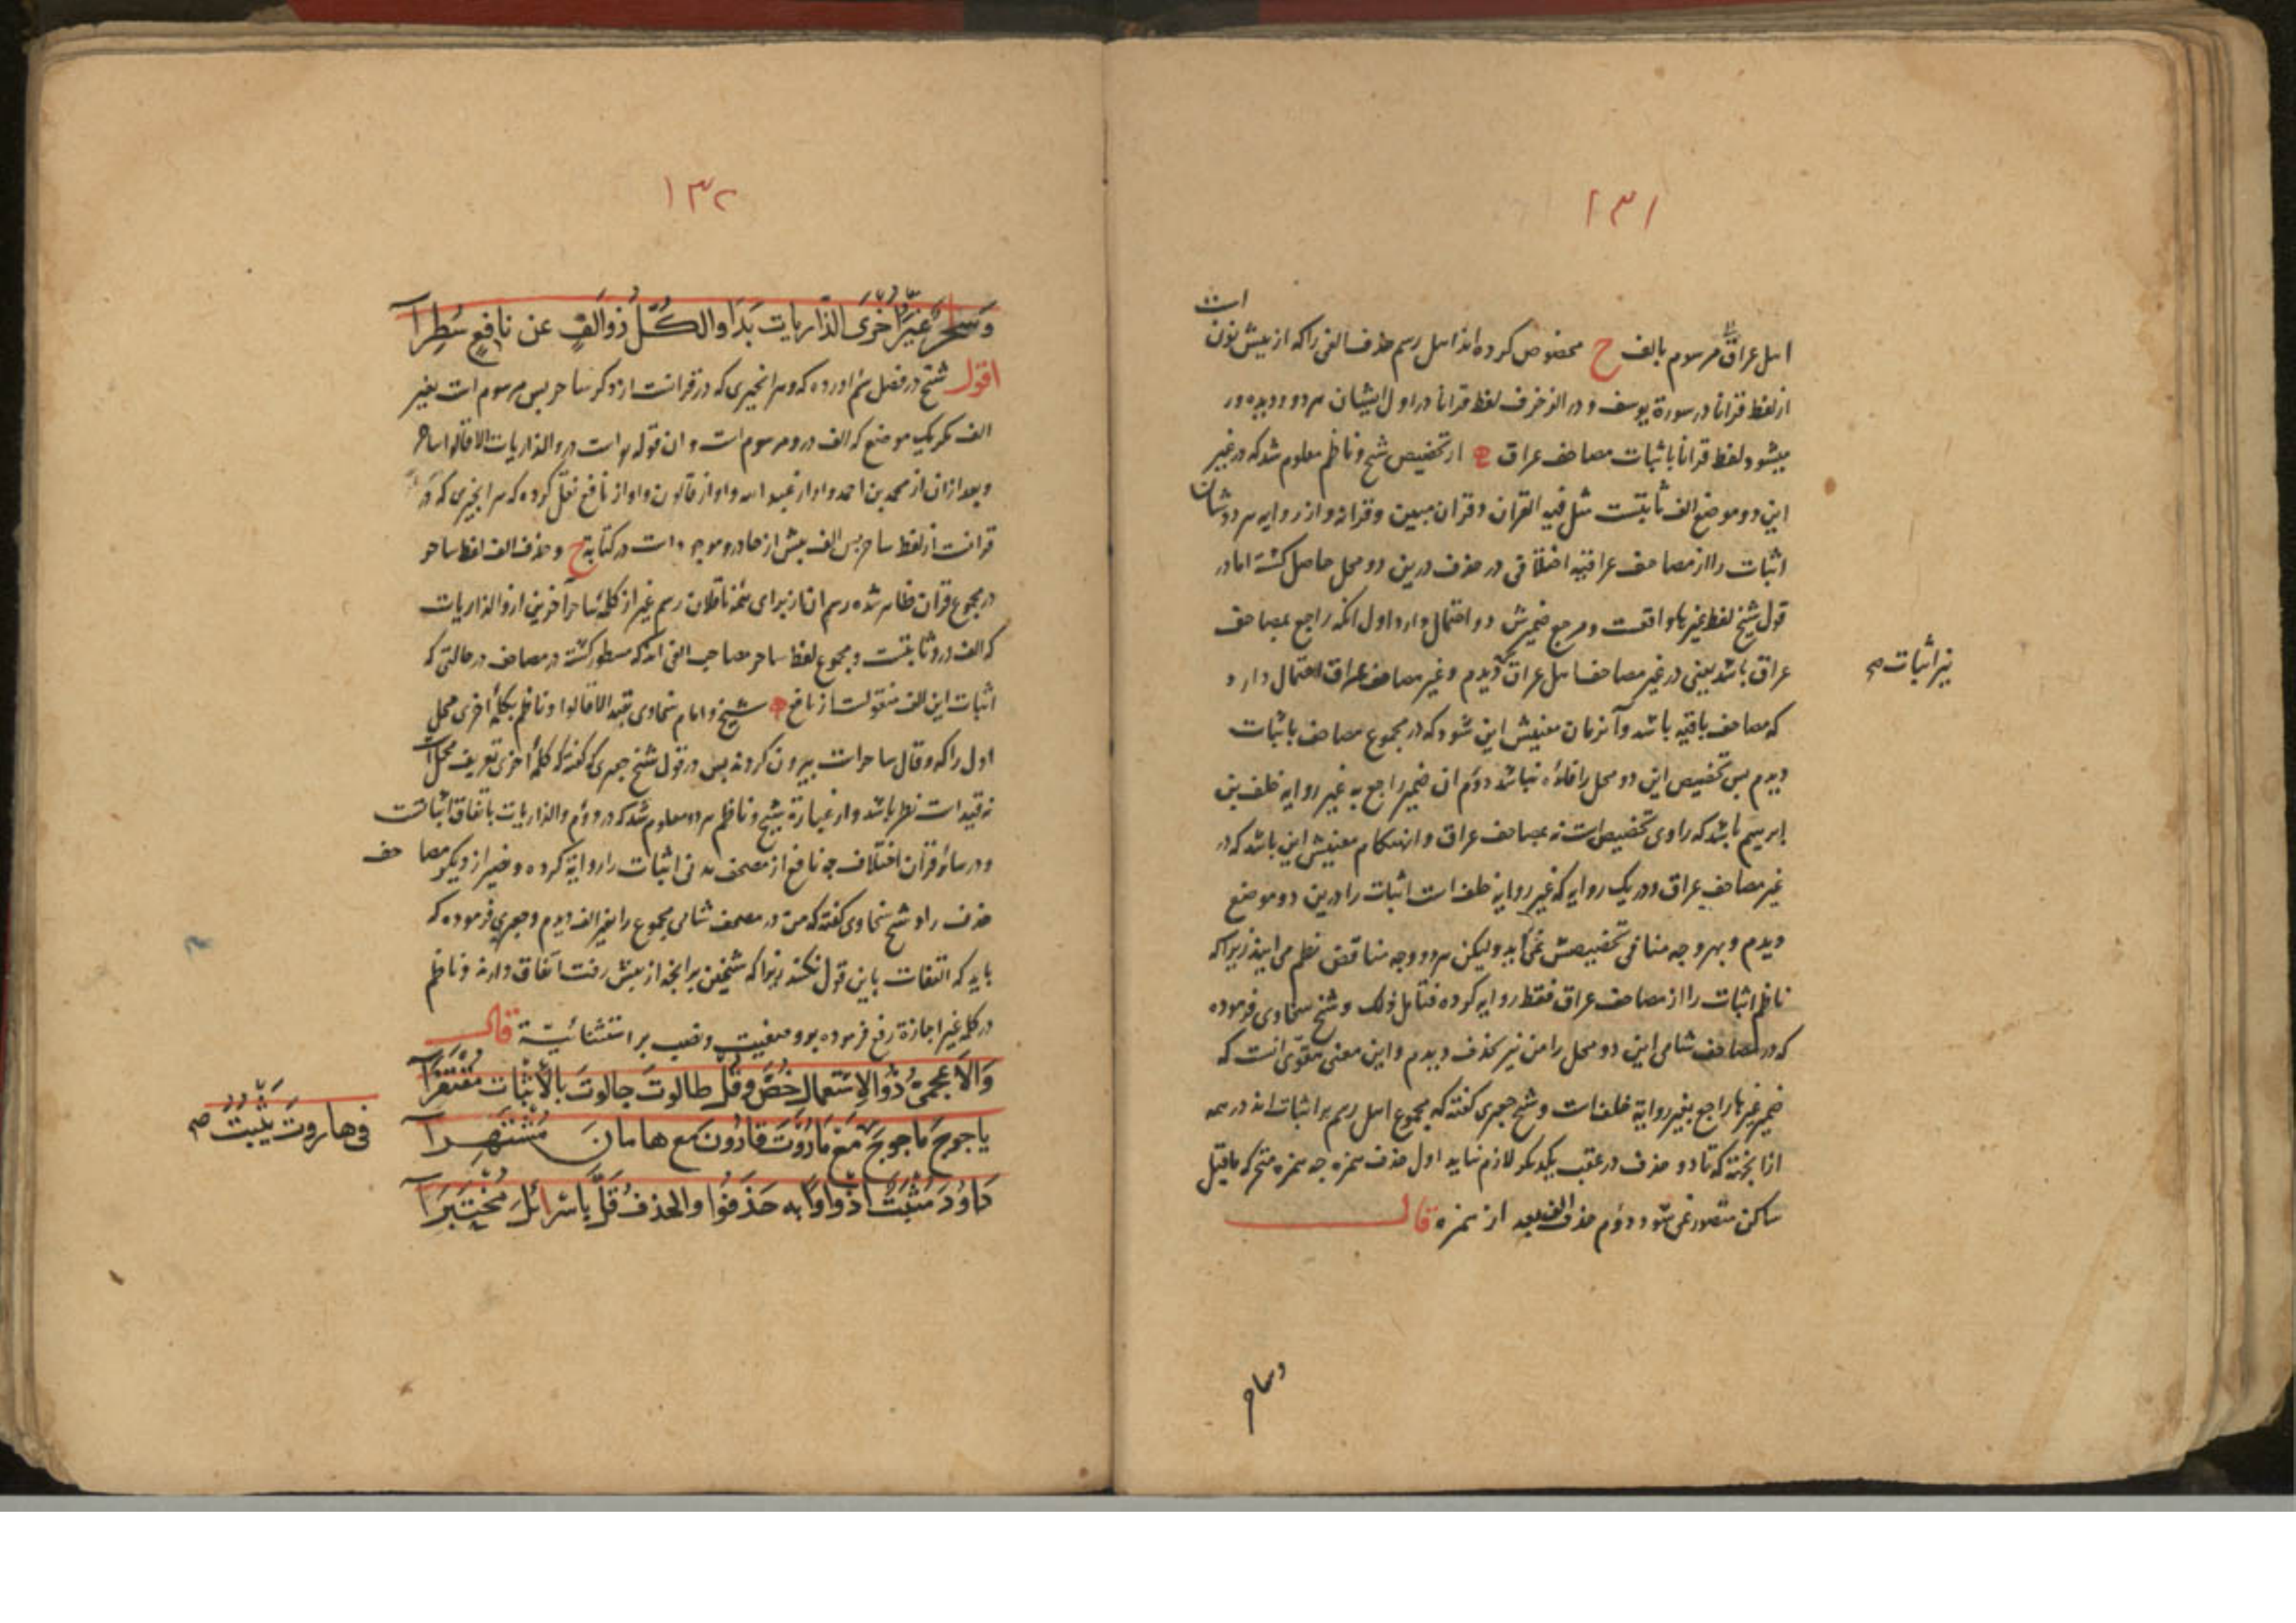 ١٣١
اهل عراق مرسوم بالف ح مخصوص کرده اند اهل رسم حذف الفی را که از پیش نون است
از لفظ قرانا در سورة یوسف و در الزخرف لفظ قرانا در اول ایشان هر دو و دیده ور
میشود لفظ قرانا باثبات مصاحف عراق از تخصیص شیخ و ناظم معلوم شد که در غیر
این دو موضع الف ثابتست مثل فیه القران و قران مبین و قرانه و از روایه هر دوشان
اثبات را از مصاحف عراقیه اختلافی در حذف درین دو محل حاصل کشته اما در
قول شیخ لفظ غیرها واقعست و مرجع ضمیرش دو احتمال دارد اول انکه راجع بمصاحف
عراق باشد یعنی در غیر مصاحف اهل عراق دیدم و غیر مصاحف عراق احتمال دارد
نیز اثبات صح
که مصاحف باقیه باشد و آنزمان معنیش این شود که در مجموع مصاحف باثبات
دیدم پس تخصیص این دو محل را فائده نباشد دوم ان ضمیر راجع به غیر روایه خلف بن
ابرهیم باشد که راوی تخصیص است نه بمصاحف عراق و ان هنکام معنیش این باشد که در
غیر مصاحف عراق و در یک روایه که غیر روایه خلف است اثبات را درین دو موضع
دیدم و بهر وجه منافی تخصیصش نمی آید ولیکن هر دو وجه مناقض نظم می آیند زیرا که
ناظم اثبات را از مصاحف عراق فقط روایه کرده فتأمل ذلک و شیخ سخاوی فرموده
که در مصاحف شامی این دو محل را من نیز بحذف دیدم و این معنی مقوّی انست که
ضمیر غیرها راجع بغیر روایة خلف است و شیخ جعبری کفته که مجموع اهل رسم بر اثبات اند در همه
از انجهته که تا دو حذف در عقب یکدیکر لازم نیاید اول حذف همزه چه همزه متحرکه ماقبل
ساکن متصور نمی شود دوم حذف الف بعد از همزه قال
وساحر
١٣٢
وَسَاحِرٌ غَيْرُ اُخْرَى الذَّارِيَاتِ بَدَا وَالكُلُّ ذُو اَلِفٍ عَنْ نَافِعٍ سُطِرَا
اقول شیخ در فصل سیّم اورده که و هر انچیزی که در قرانست از ذکر ساحر پس مرسوم است بغیر
الف مکر یک موضع که الف درو مرسوم است و ان قوله تعالی است در والذاریات الا قالوا ساحر
و بعد ازان از محمد بن احمد و او از عبد الله و او از قالون و او از نافع نقل کرده که هر انچیزی که در
قرانست از لفظ ساحر پس الف پیش از حا درو موجود است در کتابة ح و حذف الف لفظ ساحر
در مجموع قران ظاهر شده رسم ان از برای ائمه ناقلان رسم غیر از کلمه ساحر آخرین از والذاریات
که الف درو ثابتست و مجموع لفظ ساحر صاحب الفی اند که مسطور کشته در مصاحف در حالتی که
اثبات این الف منقولست از نافع شیخ و امام سخاوی بقید الا قالوا و ناظم بکلمه اخری محل
اول را که و قال ساحر است بیرون کردند پس در قول شیخ جعبری که کفته که کلمه اخری تعریف محل است
نه قید است نظر باشد و از عبارة شیخ و ناظم هر دو معلوم شد که در دوم والذاریات باتفاق اثباتست
و در سائر قرآن اختلاف چه نافع از مصحف مدنی اثبات را روایة کرده و غیر از دیکر مصاحف
حذف را و شیخ سخاوی کفته که من در مصحف شامی مجموع را بغیر الف دیدم و جعبری فرموده که
باید که التفات باین قول نکنند زیرا که شیخین بر انچه از پیش رفت اتفاق دارند و ناظم
در کلمه غیر اجازة رفع فرموده بر وصفیت و نصب بر استثنائیة قال
وَالاَعْجَمِىُّ ذُو الاِسْتِعْمَالِ خُصَّ وَقُلْ طَالُوتَ جَالُوتَ بِالاِثْبَاتِ مُغْتَفِرَا
يَاجُوجَ مَاجُوجَ مَعْ مَارُوتَ قَارُونَ مَعْ هَامَانَ مُشْتَهِرَا
فى هاروتَ يَثْبُتُ صح
دَاوُدَ مُثْبَتٌ اِذْ وَاوًا بِهِ حَذَفُوا وَالحَذْفُ قَلَّ بِاِسْرَائِلَ مُخْتَبَرَا